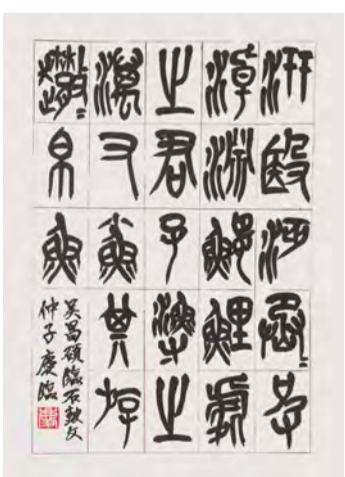 汧殹沔丞皮
淖淵鰋鯉處
之君子漁之
澫又小魚其斿
帛魚
吴昌碩臨石鼓文
仲子慶臨